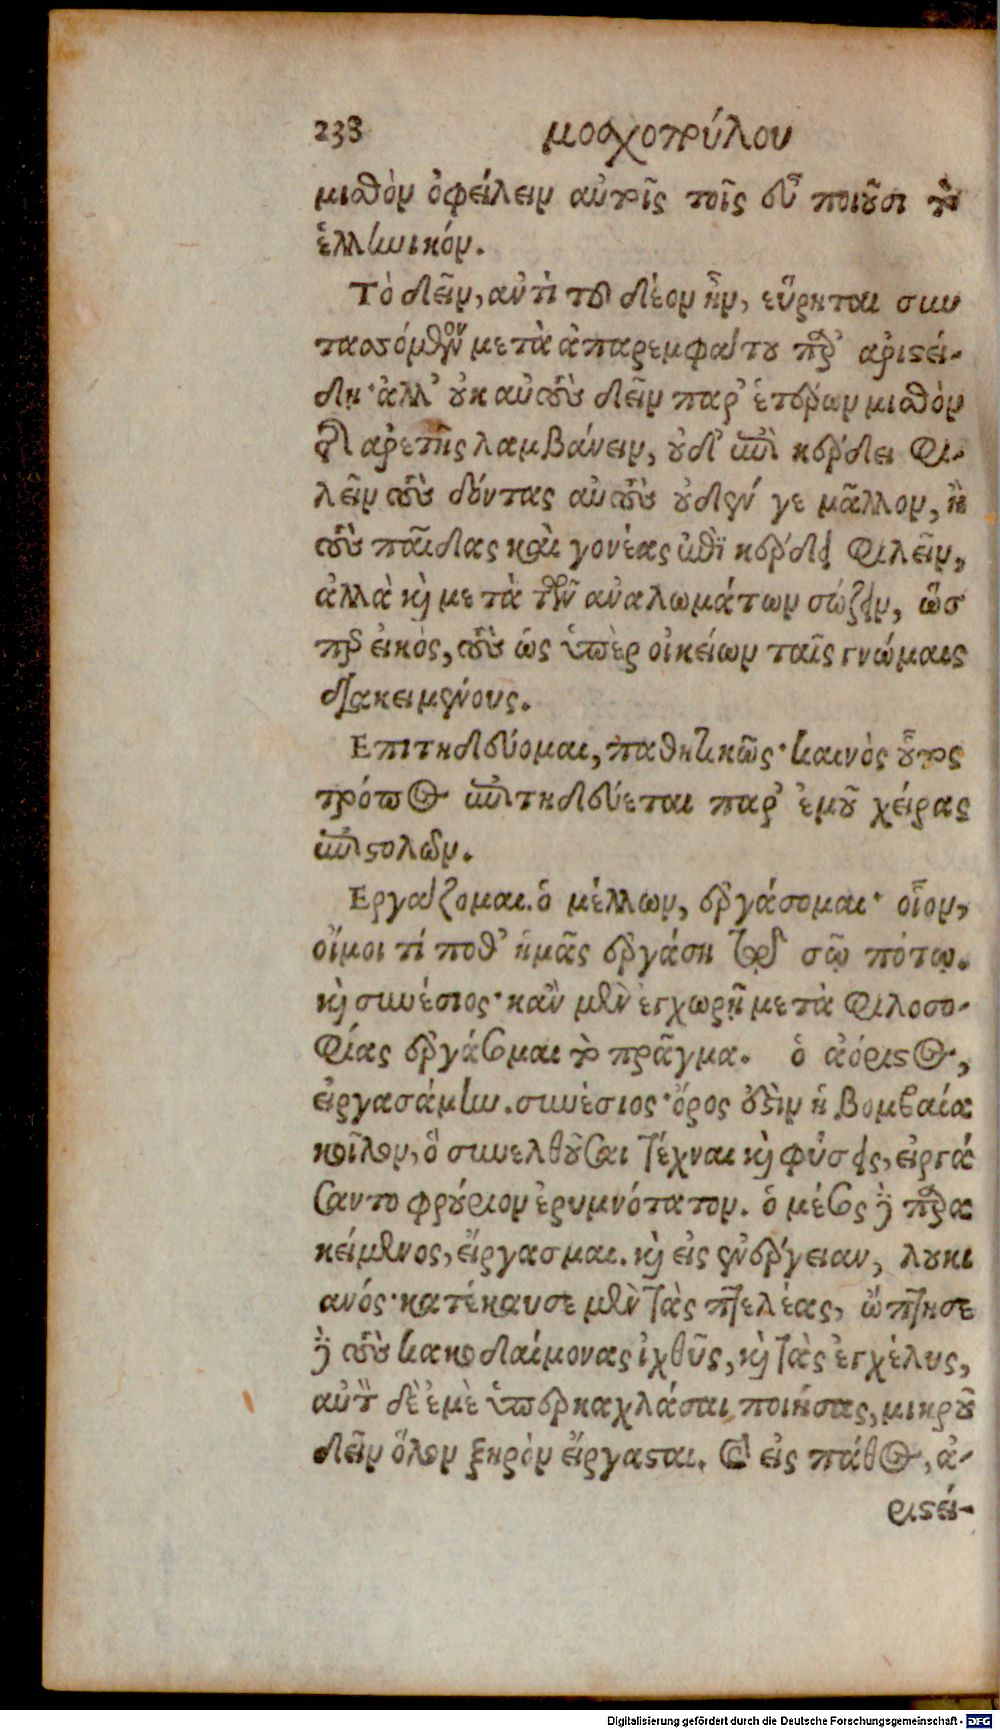 238 μοσχοπούλου
μισθὸν ὀφείλειν αὐτοῖς τοῖς εὖ ποιοῦσι τὸ
ἑλληνικόν.
Τὸ δεῖν, ἀντὶ τοῦ δέον ἦν, εὕρηται συν
τασσόμενον μετὰ ἀπαρεμφάτου παρ' ἀριστεί-
δη· ἀλλ' οὐκ αὐτοὺς δεῖν παρ' ἑτέρων μισθὸν
τῆς ἀρετῆς λαμβάνειν, οὐδ' ἐπὶ κέρδει φι-
λεῖν τοὺς δόντας αὐτοὺς οὐδέν γε μᾶλλον, ἢ
τοὺς παῖδας καὶ γονέας ἐπὶ κέρδει φιλεῖν,
ἀλλὰ καὶ μετὰ τῶν ἀναλωμάτων σώζειν, ὥσ
περ εἰκὸς, τοὺς ὡς ὑπὲρ οἰκείων ταῖς γνώμαις
διακειμένους.
Ἐπιτηδεύομαι, παθητικῶς· καινὸς οὗτος
τρόπος ἐπιτηδεύεται παρ' ἐμοῦ χεῖρας
ἐπιστολῶν.
Ἐργάζομαι. ὁ μέλλων, ἐργάσομαι· οἷον,
οἴμοι τί ποθ' ἡμᾶς ἐργάσῃ τῷ σῷ πότῳ.
καὶ συνέσιος· κἂν μὲν ἐγχωρῇ μετὰ φιλοσο-
φίας ἐργάσομαι τὸ πρᾶγμα. ὁ ἀόριστος,
εἰργασάμην. συνέσιος· ὄρος ἐστὶν ἡ βομβαία
κοῖλον, ὃ συνελθοῦσαι τέχναι καὶ φύσεις, εἰργά
σαντο φρούριον ἐρυμνότατον. ὁ μέσος καὶ παρα
κείμενος, εἴργασμαι. καὶ εἰς ἐνέργειαν, λουκι
ανός· κατέκαυσε μὲν τὰς πτελέας, ὤπτησε
καὶ τοὺς κακοδαίμονας ἰχθῦς, καὶ τὰς ἐγχέλυς,
αὐτὸν δὲ ἐμὲ ὑπερκαχλάσαι ποιήσας, μικροῦ
δεῖν ὅλον ξηρὸν εἴργασται. καὶ εἰς πάθος, ἀ-
ριστεί-
Digitalisierung gefördert durch die Deutsche Forschungsgemeinschaft - DFG